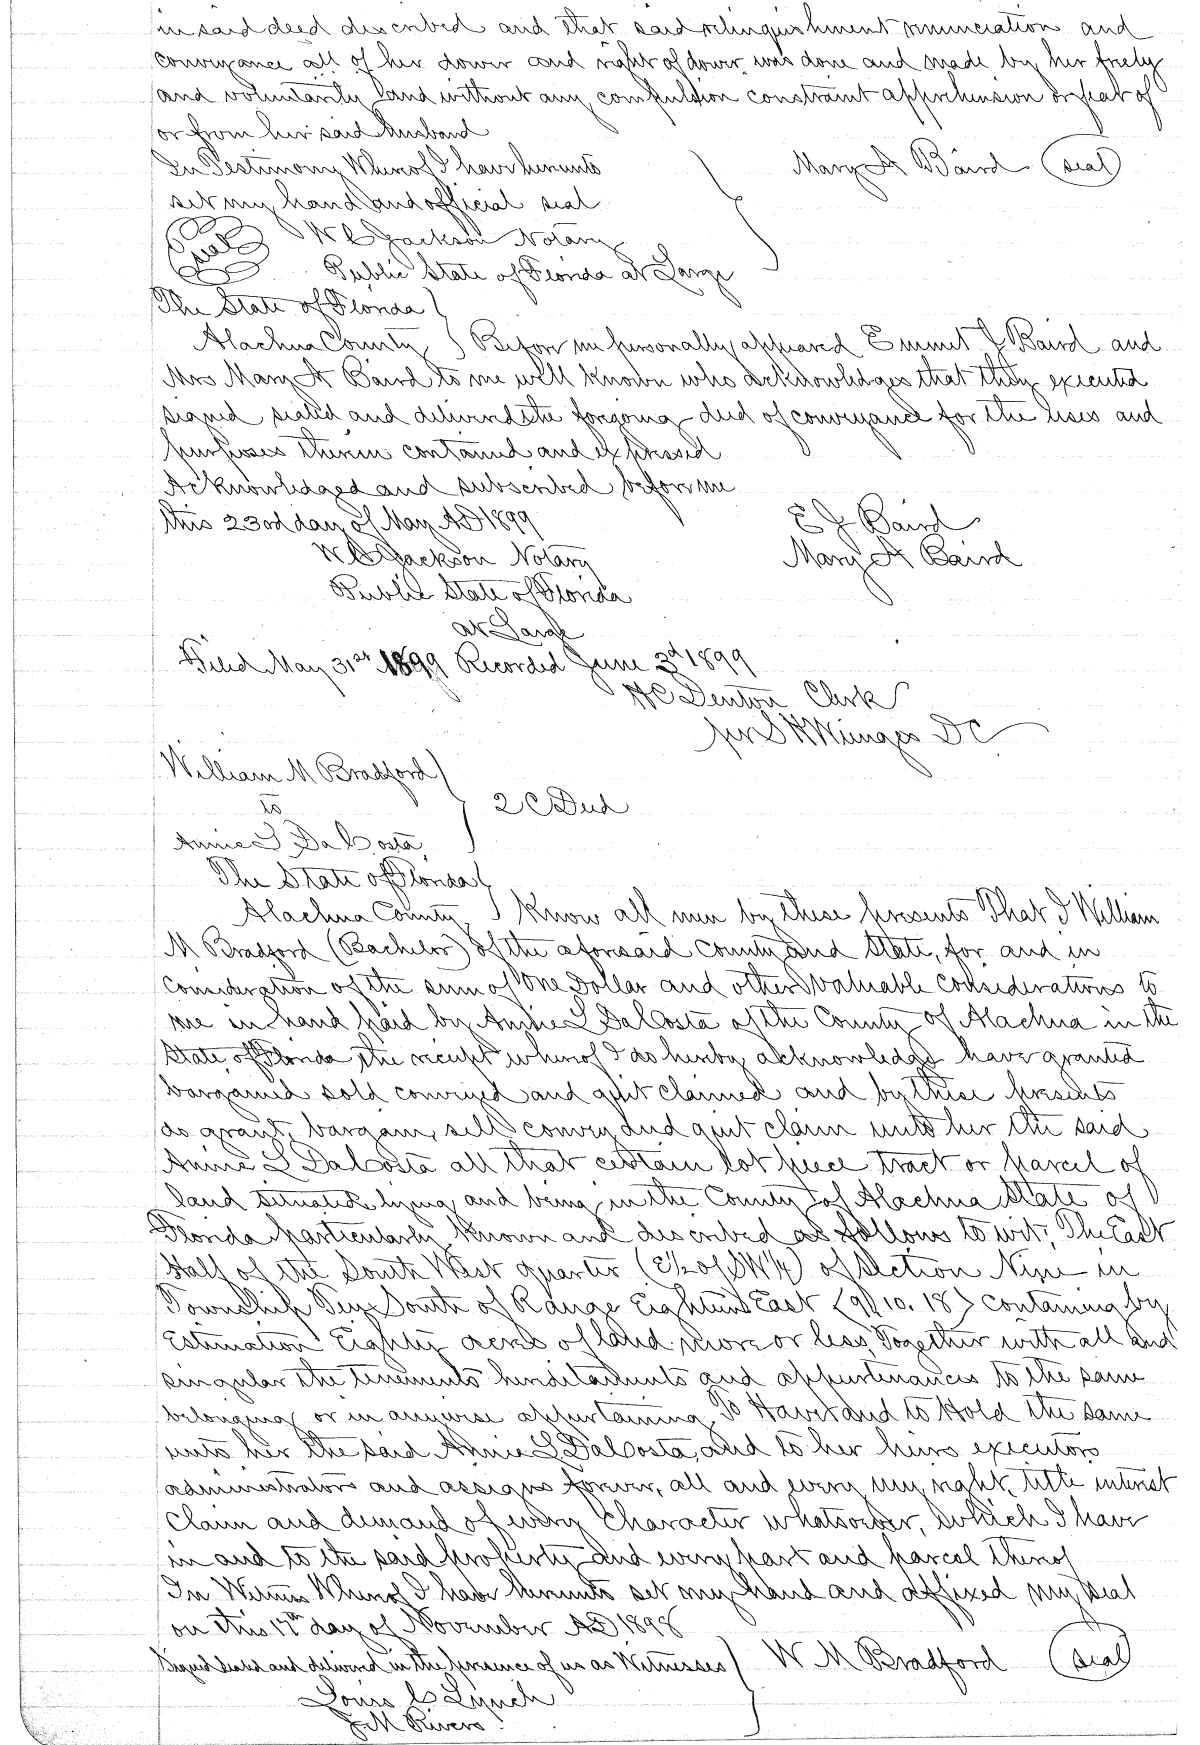 in said deed described and that said relinquishment renunciation and
conveyance all of her dower and right of dower was done and made by her freely
and voluntarily and without any compulsion constraint apprehension or fear of
or from her said husband
In Testimony Whereof I have hereunto
set my hand and official seal
Mary A Baird (seal)
(seal) W C Jackson Notary
Public State of Florida at Large
The State of Florida
Alachua County } Before me personally appeared Emmet J Baird and
Mrs Mary A Baird to me well known who acknowledges that they executed
signed sealed and delivered the forgoing deed of conveyance for the uses and
purposes therein contained and expressed
Acknowledged and subscribed before me
this 23rd day of May AD 1899
E J Baird
W C Jackson Notary
Mary A Baird
Public State of Florida
at Large
Filed May 31st 1899 Recorded June 3d 1899
H C Denton Clerk
per S H Wienges DC
William M Bradford
to } 2 C Deed
Annie L DaCosta
The State of Florida
Alachua County } Know all men by these presents That I William
M Bradford (Bachelor) of the aforesaid County and State, for and in
Consideration of the sum of One Dollar and other valuable considerations to
me in hand paid by Annie L DaCosta of the County of Alachua in the
State of Florida the receipt whereof I do hereby acknowledge have granted
bargained sold conveyed and quit claimed and by these presents
do grant, bargain, sell convey and quit claim unto her the said
Annie L DaCosta all that certain lot piece tract or parcel of
land situated lying and being in the County of Alachua State of
Florida particularly known and described as follows to wit; The East
Half of the South West quarter (E½ of SW¼) of Section Nine in
Township Ten South of Range Eighteen East (9. 10. 18) containing by
Estimation Eighty acres of land more or less, Together with all and
singular the tenements hereditaments and appurtenances to the same
belonging or in anywise appertaining, To Have and to Hold the same
unto her the said Annie L DaCosta, and to her heirs executors
administrators and assigns forever, all and every my right, title interest
Claim and demand of every Character whatsoever, which I have
in and to the said property and every part and parcel thereof
In Witness Whereof I have hereunto set my hand and affixed my seal
on this 17th day of November AD 1898
Signed sealed and delivered in the presence of us as Witnesses } W M Bradford (seal)
Louis C Lynch
J M Rivers